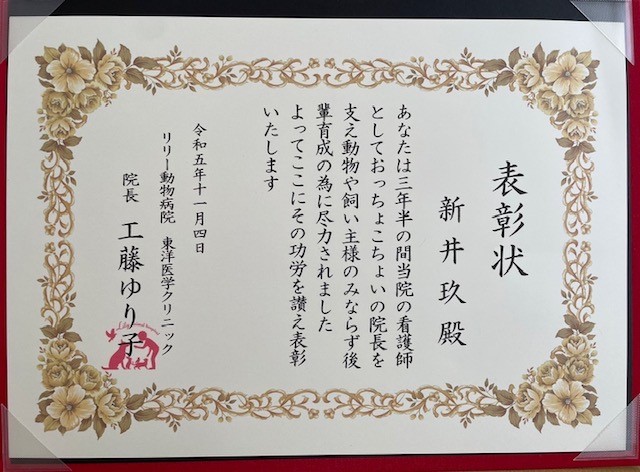 表彰状
新井玖殿
あなたは三年半の間当院の看護師
としておっちょこちょいの院長を
支え動物や飼い主様のみならず後
輩育成の為に尽力されました
よってここにその功労を讃え表彰
いたします
令和五年十一月四日
リリー動物病院 東洋医学クリニック
院長 工藤ゆり子